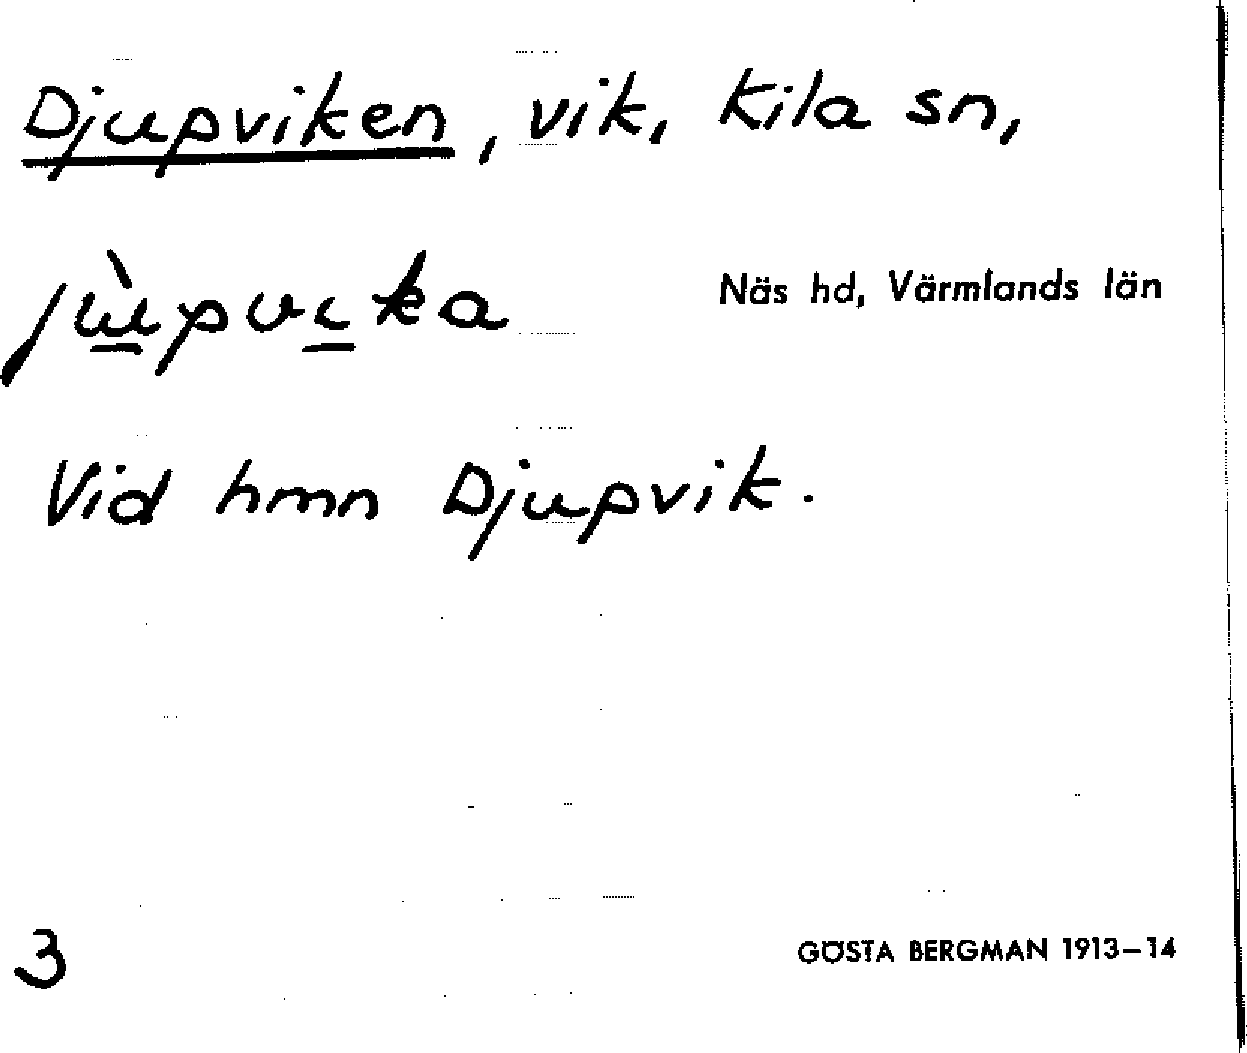 Djupviken, vik, Kila sn,
jùpvika Näs hd, Värmlands län
Vid hmn Djupvik.
3 GÖSTA BERGMAN 1913–14